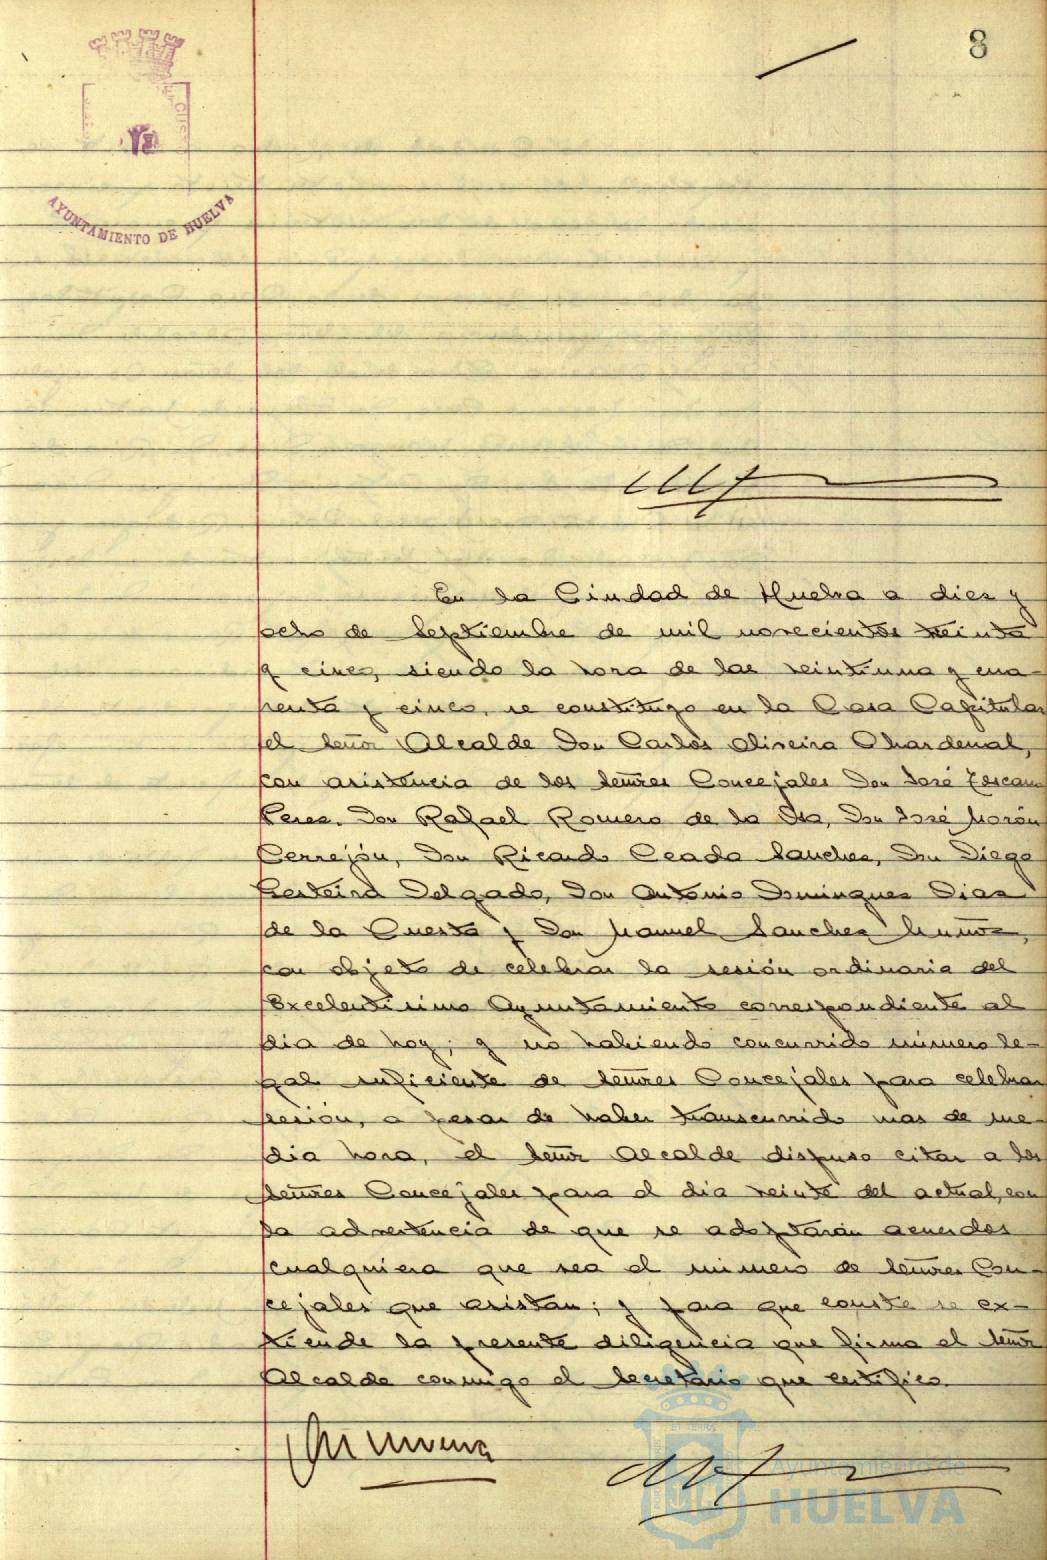 8
AYUNTAMIENTO DE HUELVA
En la Ciudad de Huelva a diez y
ocho de Septiembre de mil novecientos treinta
y cinco, siendo la hora de las veintiuna y cua-
renta y cinco, se constituyo en la Casa Capitular
el Señor Alcalde Don Carlos Oliveira Chardenal,
con asistencia de los Señores Concejales Don José Toscano
Perez, Don Rafael Romero de la Osa, Don José Morón
Cerrejón, Don Ricardo Ceada Sanchez, Don Diego
Delgado, Don Antonio Dominguez Diaz
de la Cuesta y Don Manuel Sanchez Muñoz,
con objeto de celebrar la sesión ordinaria del
Excelentisimo Ayuntamiento correspondiente al
dia de hoy; y no habiendo concurrido número le-
gal suficiente de Señores Concejales para celebrar
sesión, a pesar de haber transcurrido mas de me-
dia hora, el Señor Alcalde dispuso citar a los
Señores Concejales para el dia veinte del actual, con
la advertencia de que se adoptarán acuerdos
cualquiera que sea el número de Señores Con-
cejales que asistan; y para que conste se ex-
tiende la presente diligencia que firma el Señor
Alcalde conmigo el Secretario que certifico.
Ayuntamiento de
HUELVA